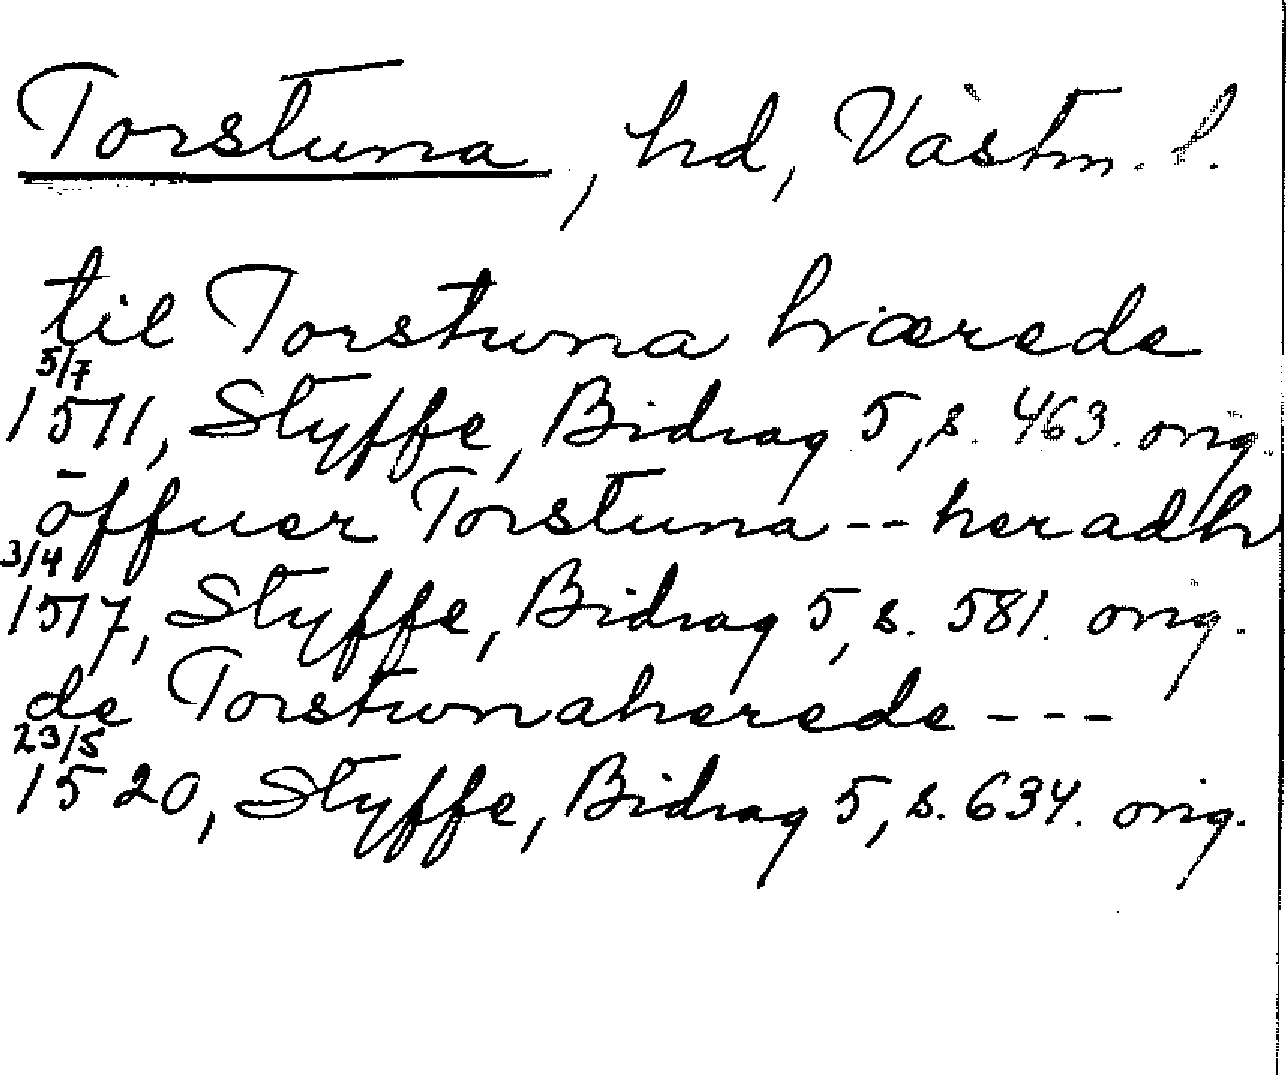 Torstuna, hd, Västm. l.
til Torstwna hværede
5/7
1511, Styffe, Bidrag 5, s. 463. orig.
öffuer Torstuna -- heradh
3/4
1517, Styffe, Bidrag 5, s. 581. orig.
de Torstwnaherede ---
23/5
1520, Styffe, Bidrag 5, s. 634. orig.